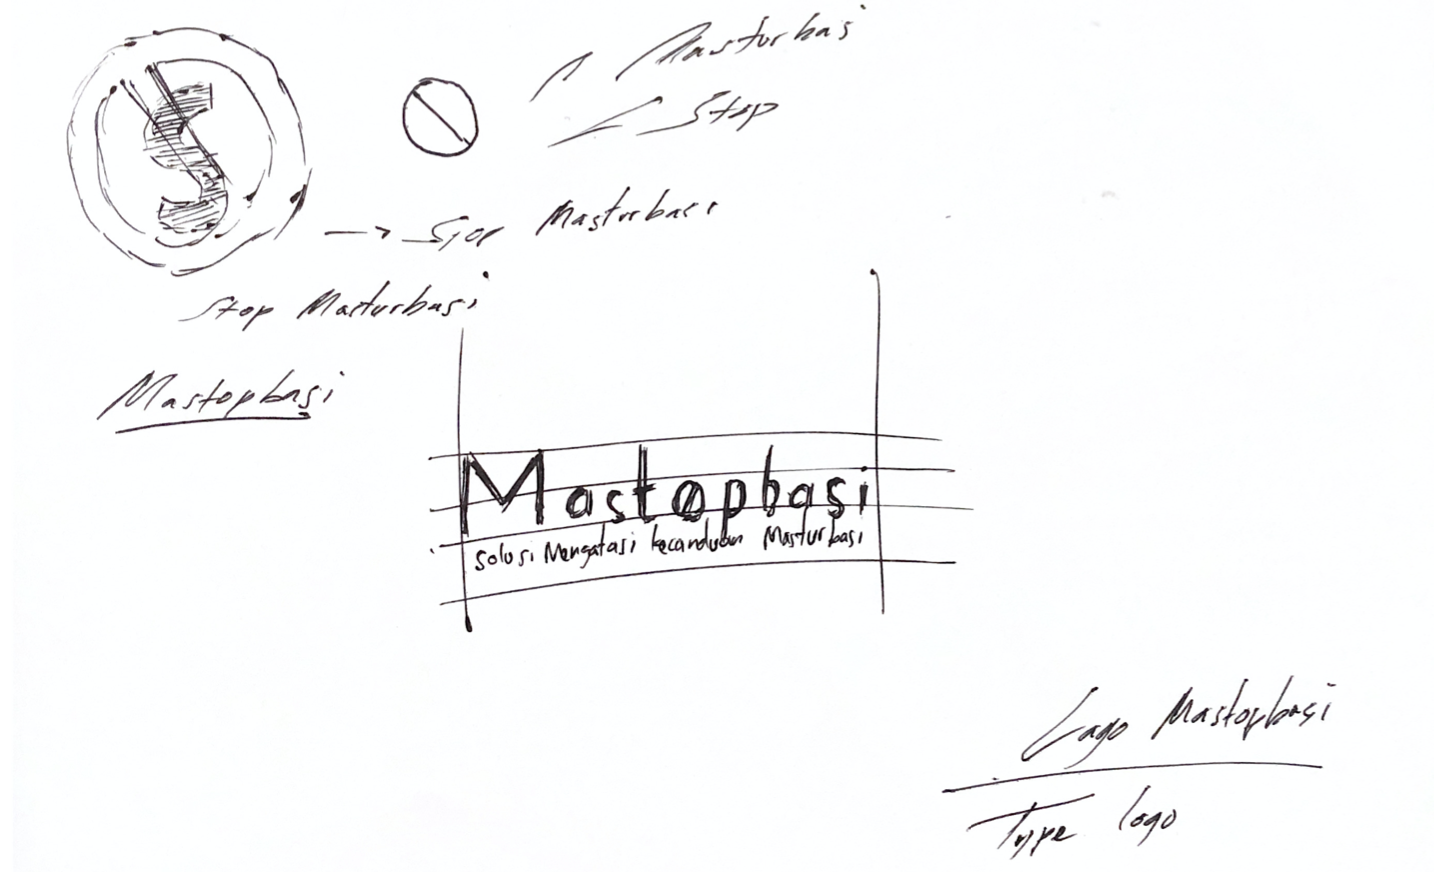 S
Masturbasi
Stop
→ Stop Masturbasi
Stop Masturbasi
Mastopbasi
Mastopbasi
Solusi Mengatasi kecanduan Masturbasi
Logo Mastopbasi
Type logo